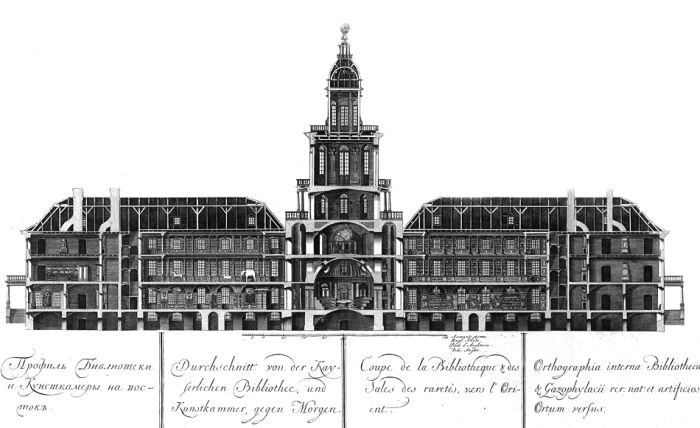 Профиль Библиотеки
и Кунсткамеры на вос-
токъ.
Durchschnitt von der Kay-
serlichen Bibliothec, und
Kunstkammer, gegen Morgen.
Coupe de la Bibliotheque & des
Sales des raretés, vers l'Ori-
ent.
Orthographia interna Bibliothecæ
& Gazophylacii rer. nat. et artificios.
Ortum versus.